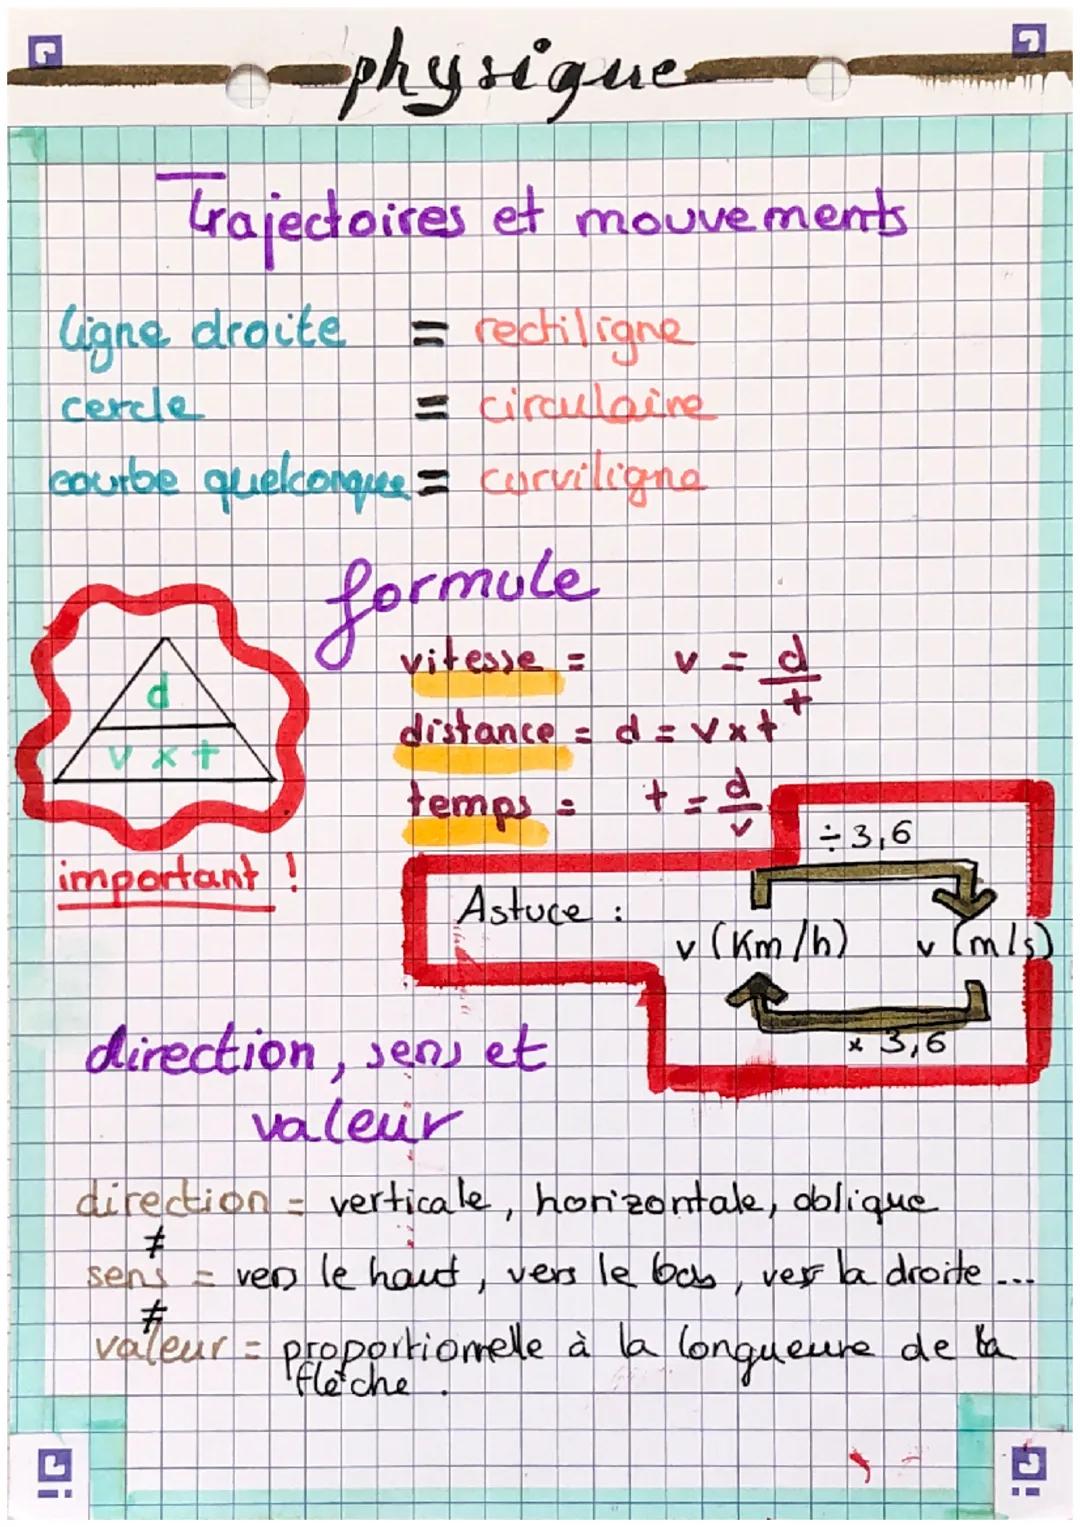 physique
Trajectoires et mouvements
ligne droite = rectiligne
cercle = circulaire
courbe quelconque = curviligne
formule
d
v x t
important !
vitesse = v = d/t
distance = d = v x t
temps = t = d/v
Astuce :
÷ 3,6
v (Km/h) v (m/s)
x 3,6
direction, sens et
valeur
direction = verticale, horizontale, oblique
≠
sens = vers le haut, vers le bas, vers la droite ...
≠
valeur = proportionnelle à la longueure de la
flèche.